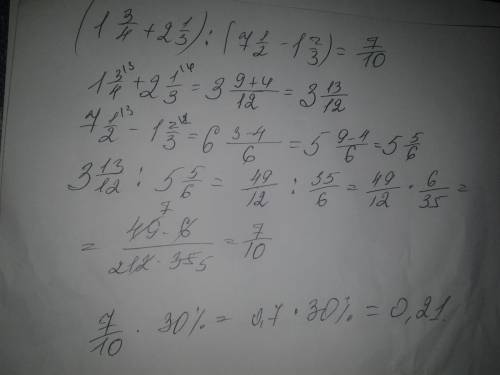 (1 3/4 + 2 1/3) : (7 1/2 - 1 2/3) = 7/10
1 3/4 + 2 1/3 = 3 (9+4)/12 = 3 13/12
7 1/2 - 1 2/3 = 6 (3-4)/6 = 5 (9-4)/6 = 5 5/6
3 13/12 : 5 5/6 = 49/12 : 35/6 = 49/12 · 6/35 =
= (49·6)/(12·35) = 7/10
7/10 · 30% = 0,7 · 30% = 0,21.